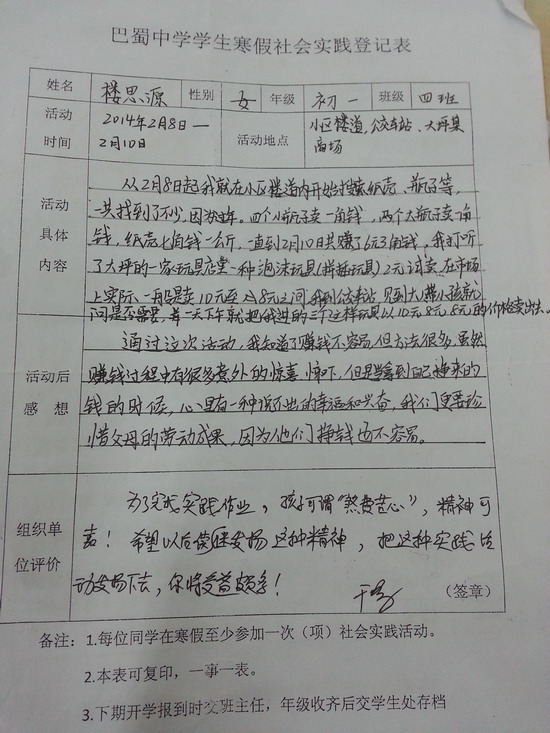 巴蜀中学学生寒假社会实践登记表
姓名 楼思源 性别 女 年级 初一 班级 四班
活动时间 2014年2月8日—2月10日 活动地点 小区楼道,公交车站、大坪某商场
活动具体内容
从2月8日起我就在小区楼道内开始搜索纸壳、瓶子等,
一共找到了不少,因为过年。四个小瓶子卖一角钱,两个大瓶子卖一角
钱,纸壳七角钱一公斤,一直到2月10日共赚了6元3角钱,我打听
了大坪的一家玩具店里一种泡沫玩具(拼插玩具)2元试卖,在市场
上实际一般是卖10元至8元之间,我到公交车站,见到大人带小孩就
问是否需要,一天下午就把我进的三个这样玩具以10元8元8元的价格卖出去。
活动后感想
通过这次活动,我知道了赚钱不容易,但方法很多,虽然
赚钱过程中有很多意外的惊喜惊吓,但是拿到自己挣来的
钱的时候,心里有一种说不出的幸福和兴奋,我们更要珍
惜父母的劳动成果,因为他们挣钱也不容易。
组织单位评价
为了完成实践作业,孩子可谓“煞费苦心”,精神可
嘉!希望以后继续发扬这种精神,把这种实践活
动发扬下去,你将受益颇多!
(签章)
备注:1.每位同学在寒假至少参加一次(项)社会实践活动。
2.本表可复印,一事一表。
3.下期开学报到时交班主任,年级收齐后交学生处存档